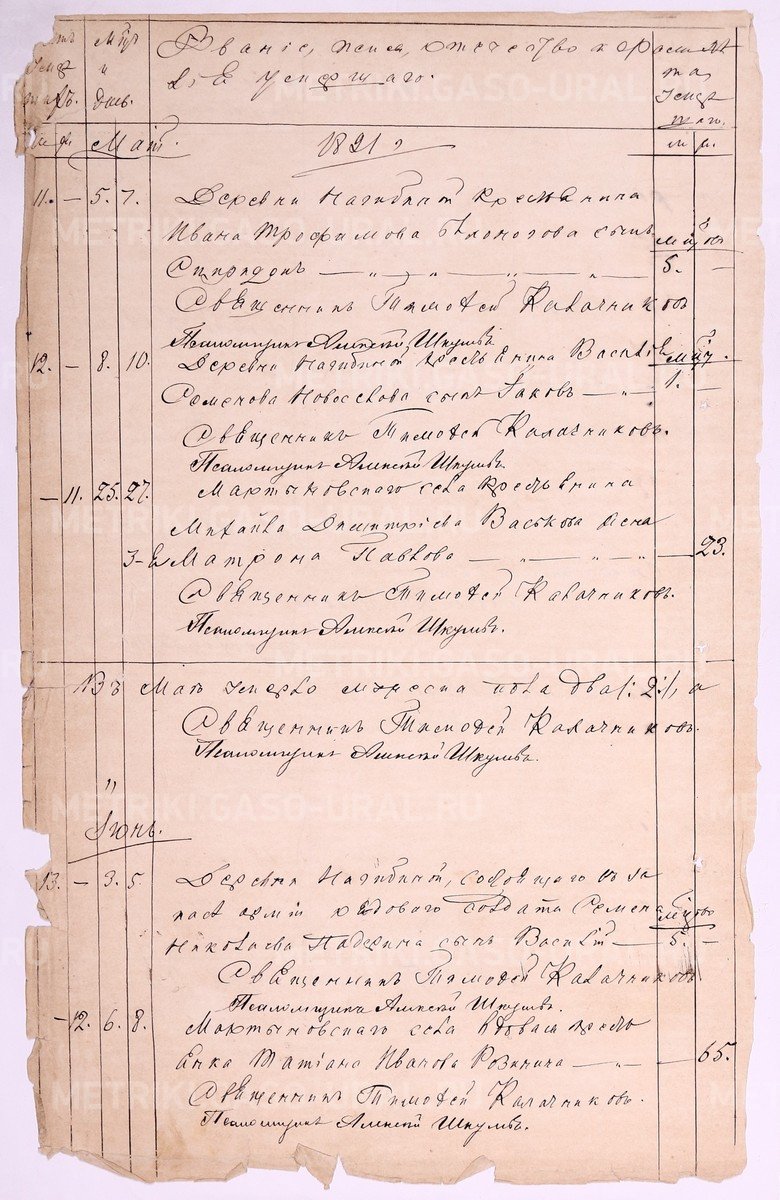 Мѣц
и
день.
Званіе, имя, отчество и фамилія
умершаго.
Лѣ
та
умер
шаго.
м. ж.
Май.
1821 г.
11. — 5. 7. Деревни Нагибиной крестьянина
Ивана Трофимова Бѣлоногова сынъ мѣцовъ
Спиридонъ — „ — „ — „ — „ — 5. —
Священникъ Тимофей Калачниковъ
Псаломщикъ Алексѣй Шкулевъ
12. — 8. 10. Деревни Нагибиной крестьянина Василія мѣц.
Семенова Новоселова сынъ Іаковъ — „ — 1. —
Священникъ Тимофей Калачниковъ.
Псаломщикъ Алексѣй Шкулевъ.
— 11. 25. 27. Мартыновскаго села крестьянина
Михайла Димитріева Васькова жена
Матрона Павлова — „ — „ — „ — 23.
Священникъ Тимофей Калачниковъ.
Псаломщикъ Алексѣй Шкулевъ.
Въ Маѣ умерло мужеска пола два /: 2 :/, а
Священникъ Тимофей Калачниковъ.
Псаломщикъ Алексѣй Шкулевъ.
„
Іюнь.
13. — 3. 5. Деревни Нагибиной, состоящаго въ за
пасѣ арміи рядового солдата Семена мѣцовъ
Николаева Падерина сынъ Василій — 5. —
Священникъ Тимофей Калачниковъ
Псаломщикъ Алексѣй Шкулевъ.
— 12. 6. 8. Мартыновскаго села вдовая кресть
янка Татіана Иванова — „ — 65.
Священникъ Тимофей Калачниковъ.
Псаломщикъ Алексѣй Шкулевъ.
METRIKI.GASO-URAL.RU